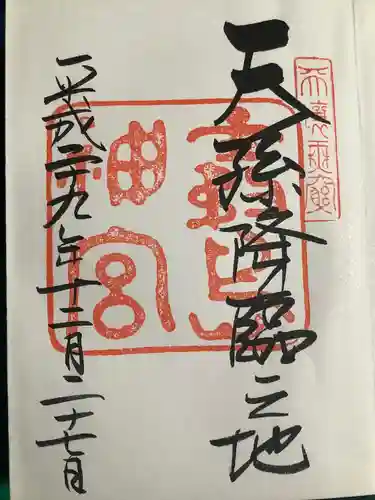 天孫降臨之地
平成二十九年十二月二十七日
神宮